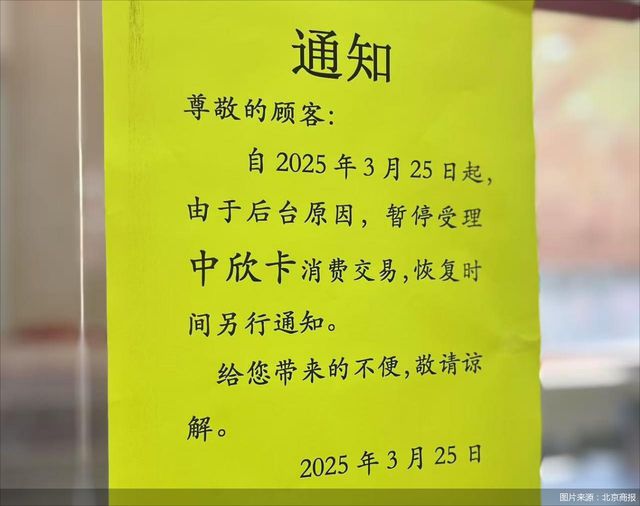 通知
尊敬的顾客：
自2025年3月25日起，
由于后台原因，暂停受理
中欣卡消费交易，恢复时
间另行通知。
给您带来的不便，敬请谅
解。
2025年3月25日
图片来源：北京商报